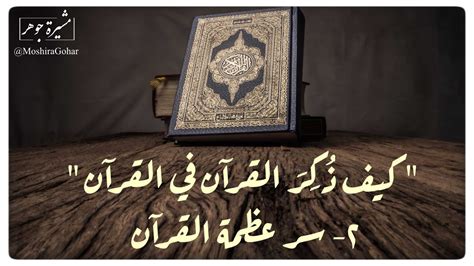 مشيرة جوهر
@MoshiraGohar
القرآن الكريم
"كيف ذُكِرَ القرآن في القرآن"
٢- سر عظمة القرآن